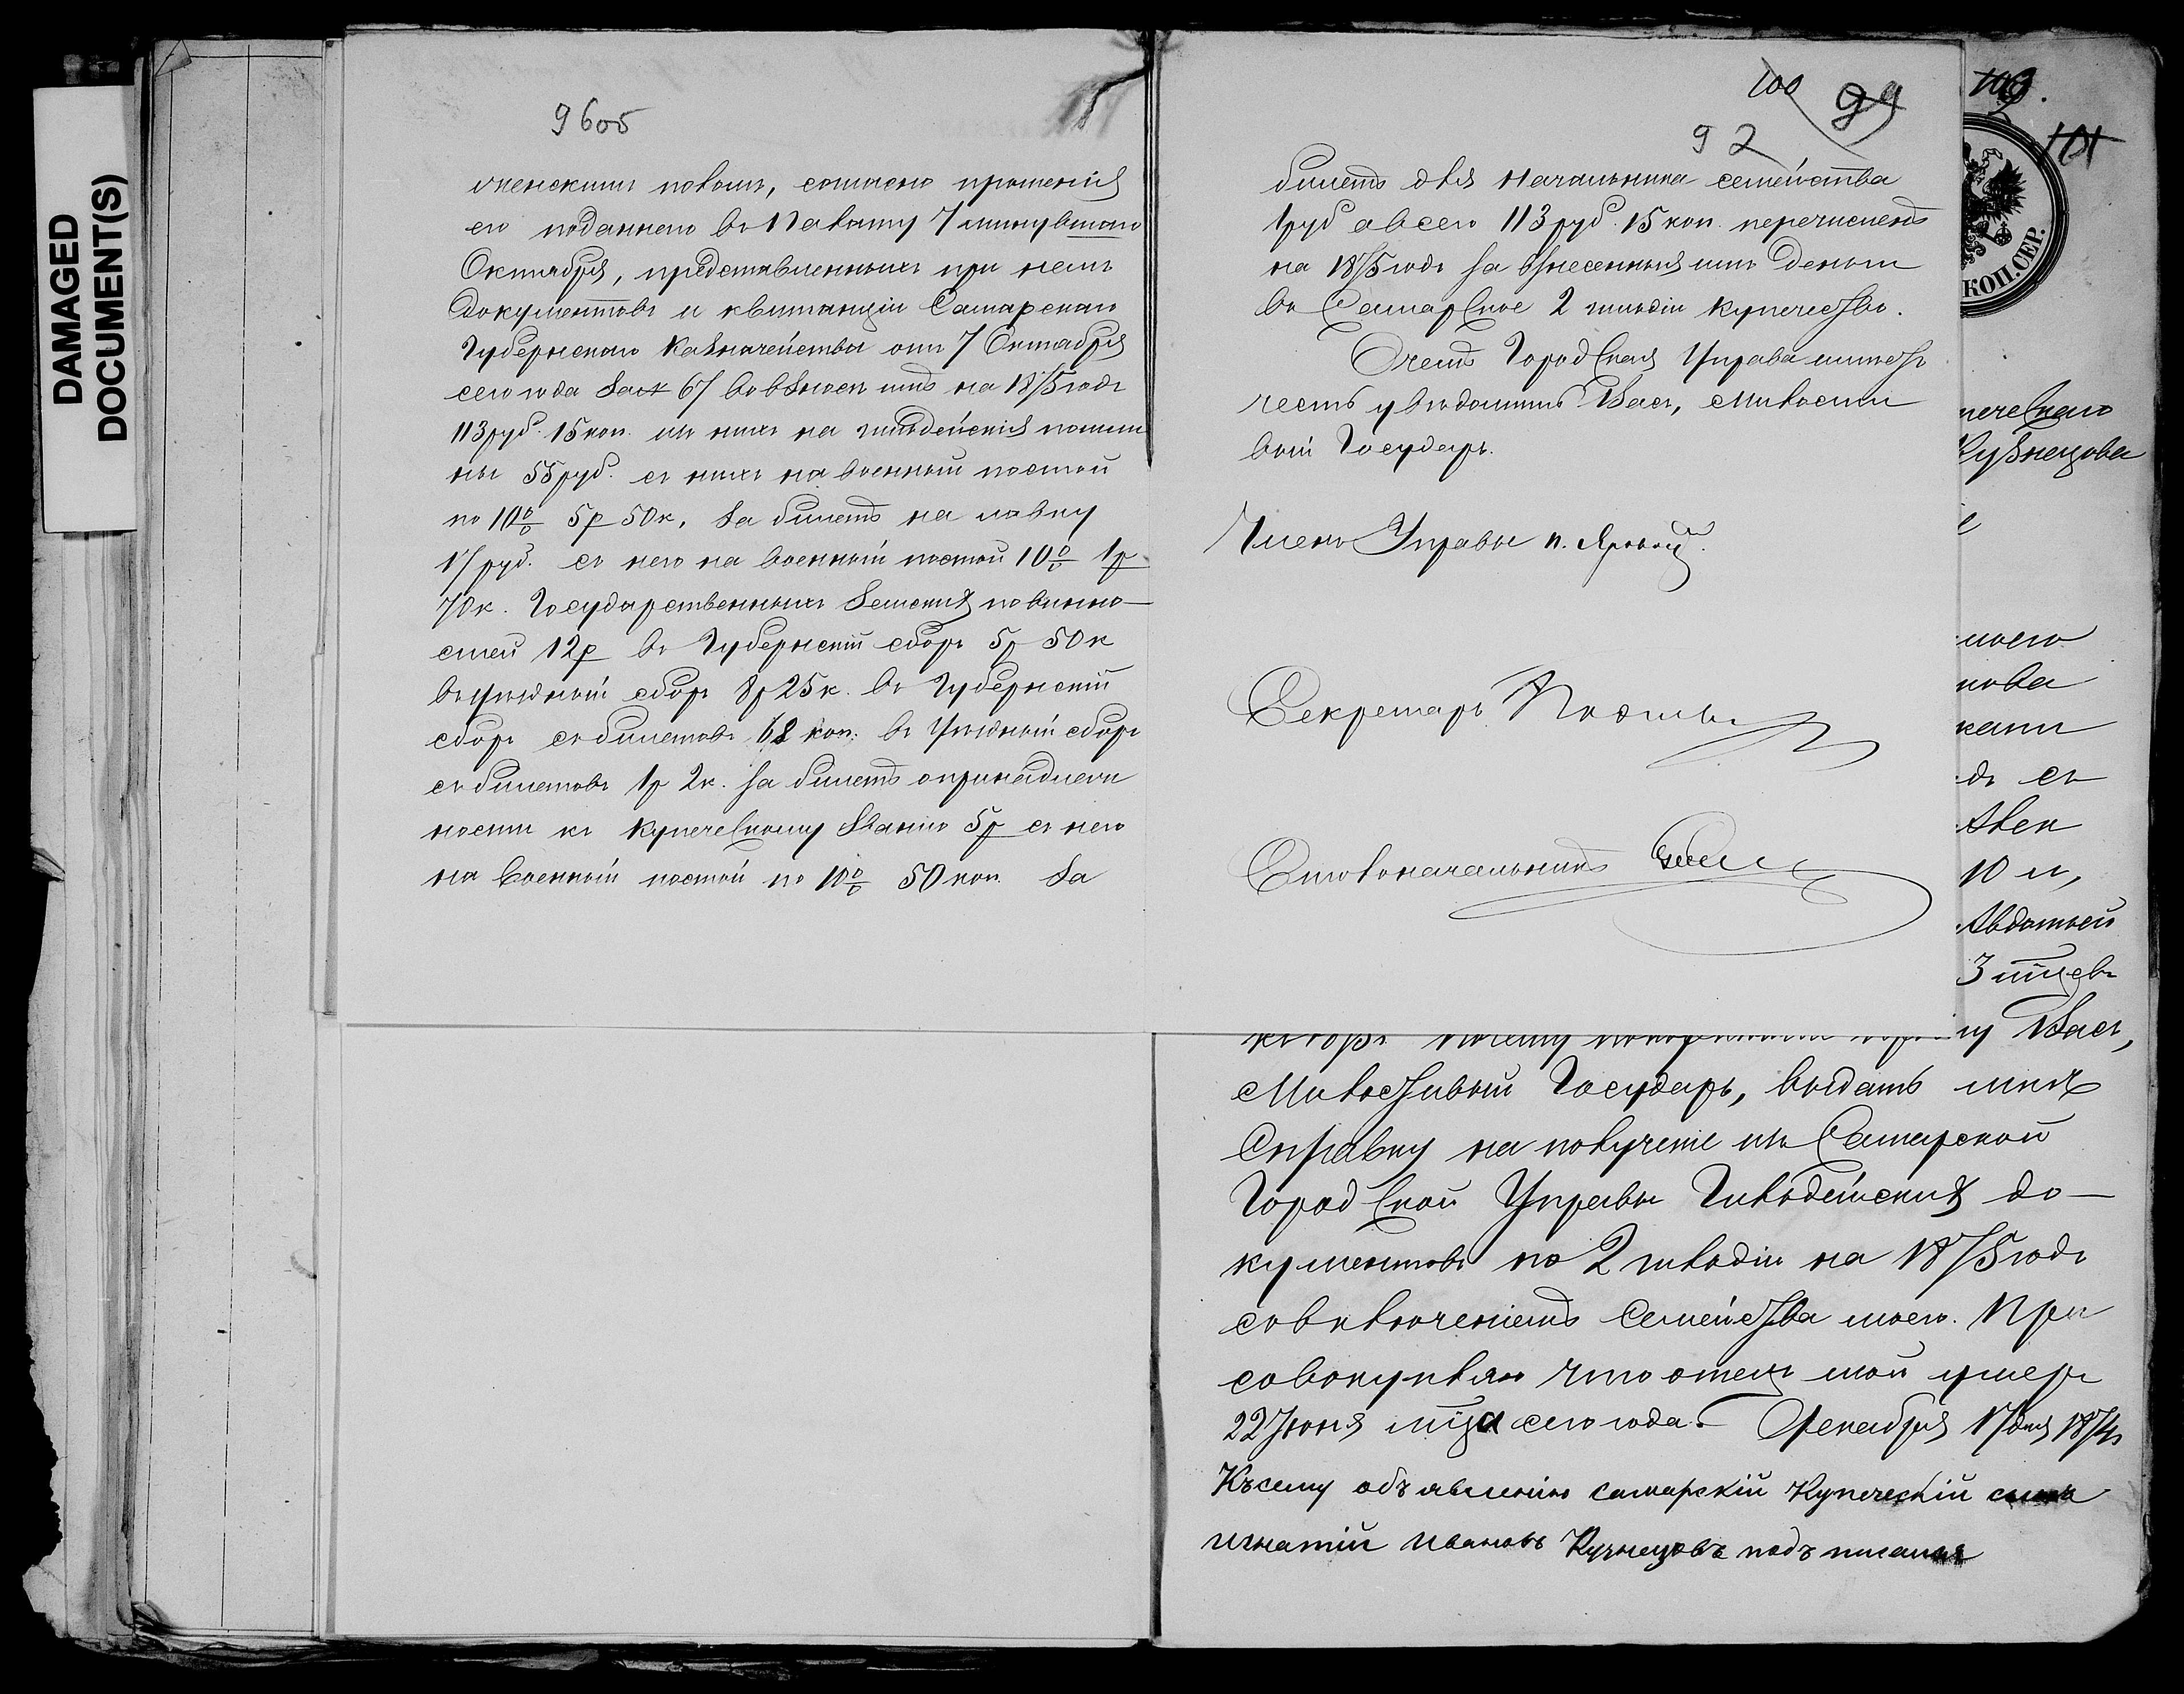 DAMAGED
DOCUMENT(S)
96об
женскимъ поломъ, согласно прошенія
его поданнаго въ Палату 7 минувшаго
Октября, представленныхъ при немъ
документовъ и квитанціи Самарскаго
Губернскаго Казначейства отъ 7 Октября
сего года за № 67 во взносѣ имъ на 1875 годъ
113 руб. 15 коп. изъ нихъ на гильдейскія пошли
ны 55 руб. съ нихъ на военный постой
по 10% 5р 50к, за билетъ на лавку
17 руб. съ него на военный постой 10% 1р
70к. Государственныхъ земскихъ повинно—
стей 12р въ Губернскій сборъ 5р 50к
въ уѣздный сборъ 8р 25к. въ Губернскій
сборъ съ билетовъ 68 коп. въ Уѣздный сборъ
съ билетовъ 1р 2к. за билетъ о принадлеж
ности къ купеческому званію 5р съ него
на военный постой по 10% 50 коп. за
100 99
92
билетъ для начальника семейства
1 руб а всего 113 руб. 15 коп. перечисленъ
на 1875 годъ за внесенныя имъ деньги
въ Самарское 2 гильдіи купечество.
О чемъ Городская Управа имѣетъ
честь увѣдомить Васъ, Милости
вый Государь.
Членъ Управы п.
Секретарь
Столоначальникъ
101
КОП. СЕР.
Кузнецова
моего
нова
съ
10 л,
Авдотьей
3 мѣсяцевъ
почему Васъ,
Милостивый Государь, выдать мнѣ
Справку на полученіе изъ Самарской
Городской Управы Гильдейскихъ до—
кументовъ по 2 гильдіи на 1875 годъ
со включеніемъ Семейства моего. При
совокупляю что отецъ мой умеръ
22 Іюня мѣсяца сего года. Декабря 17 дня 1874
Къ сему объявленію самарскій Купеческій сынъ
игнатій ивановъ Кузнецовъ подъписался